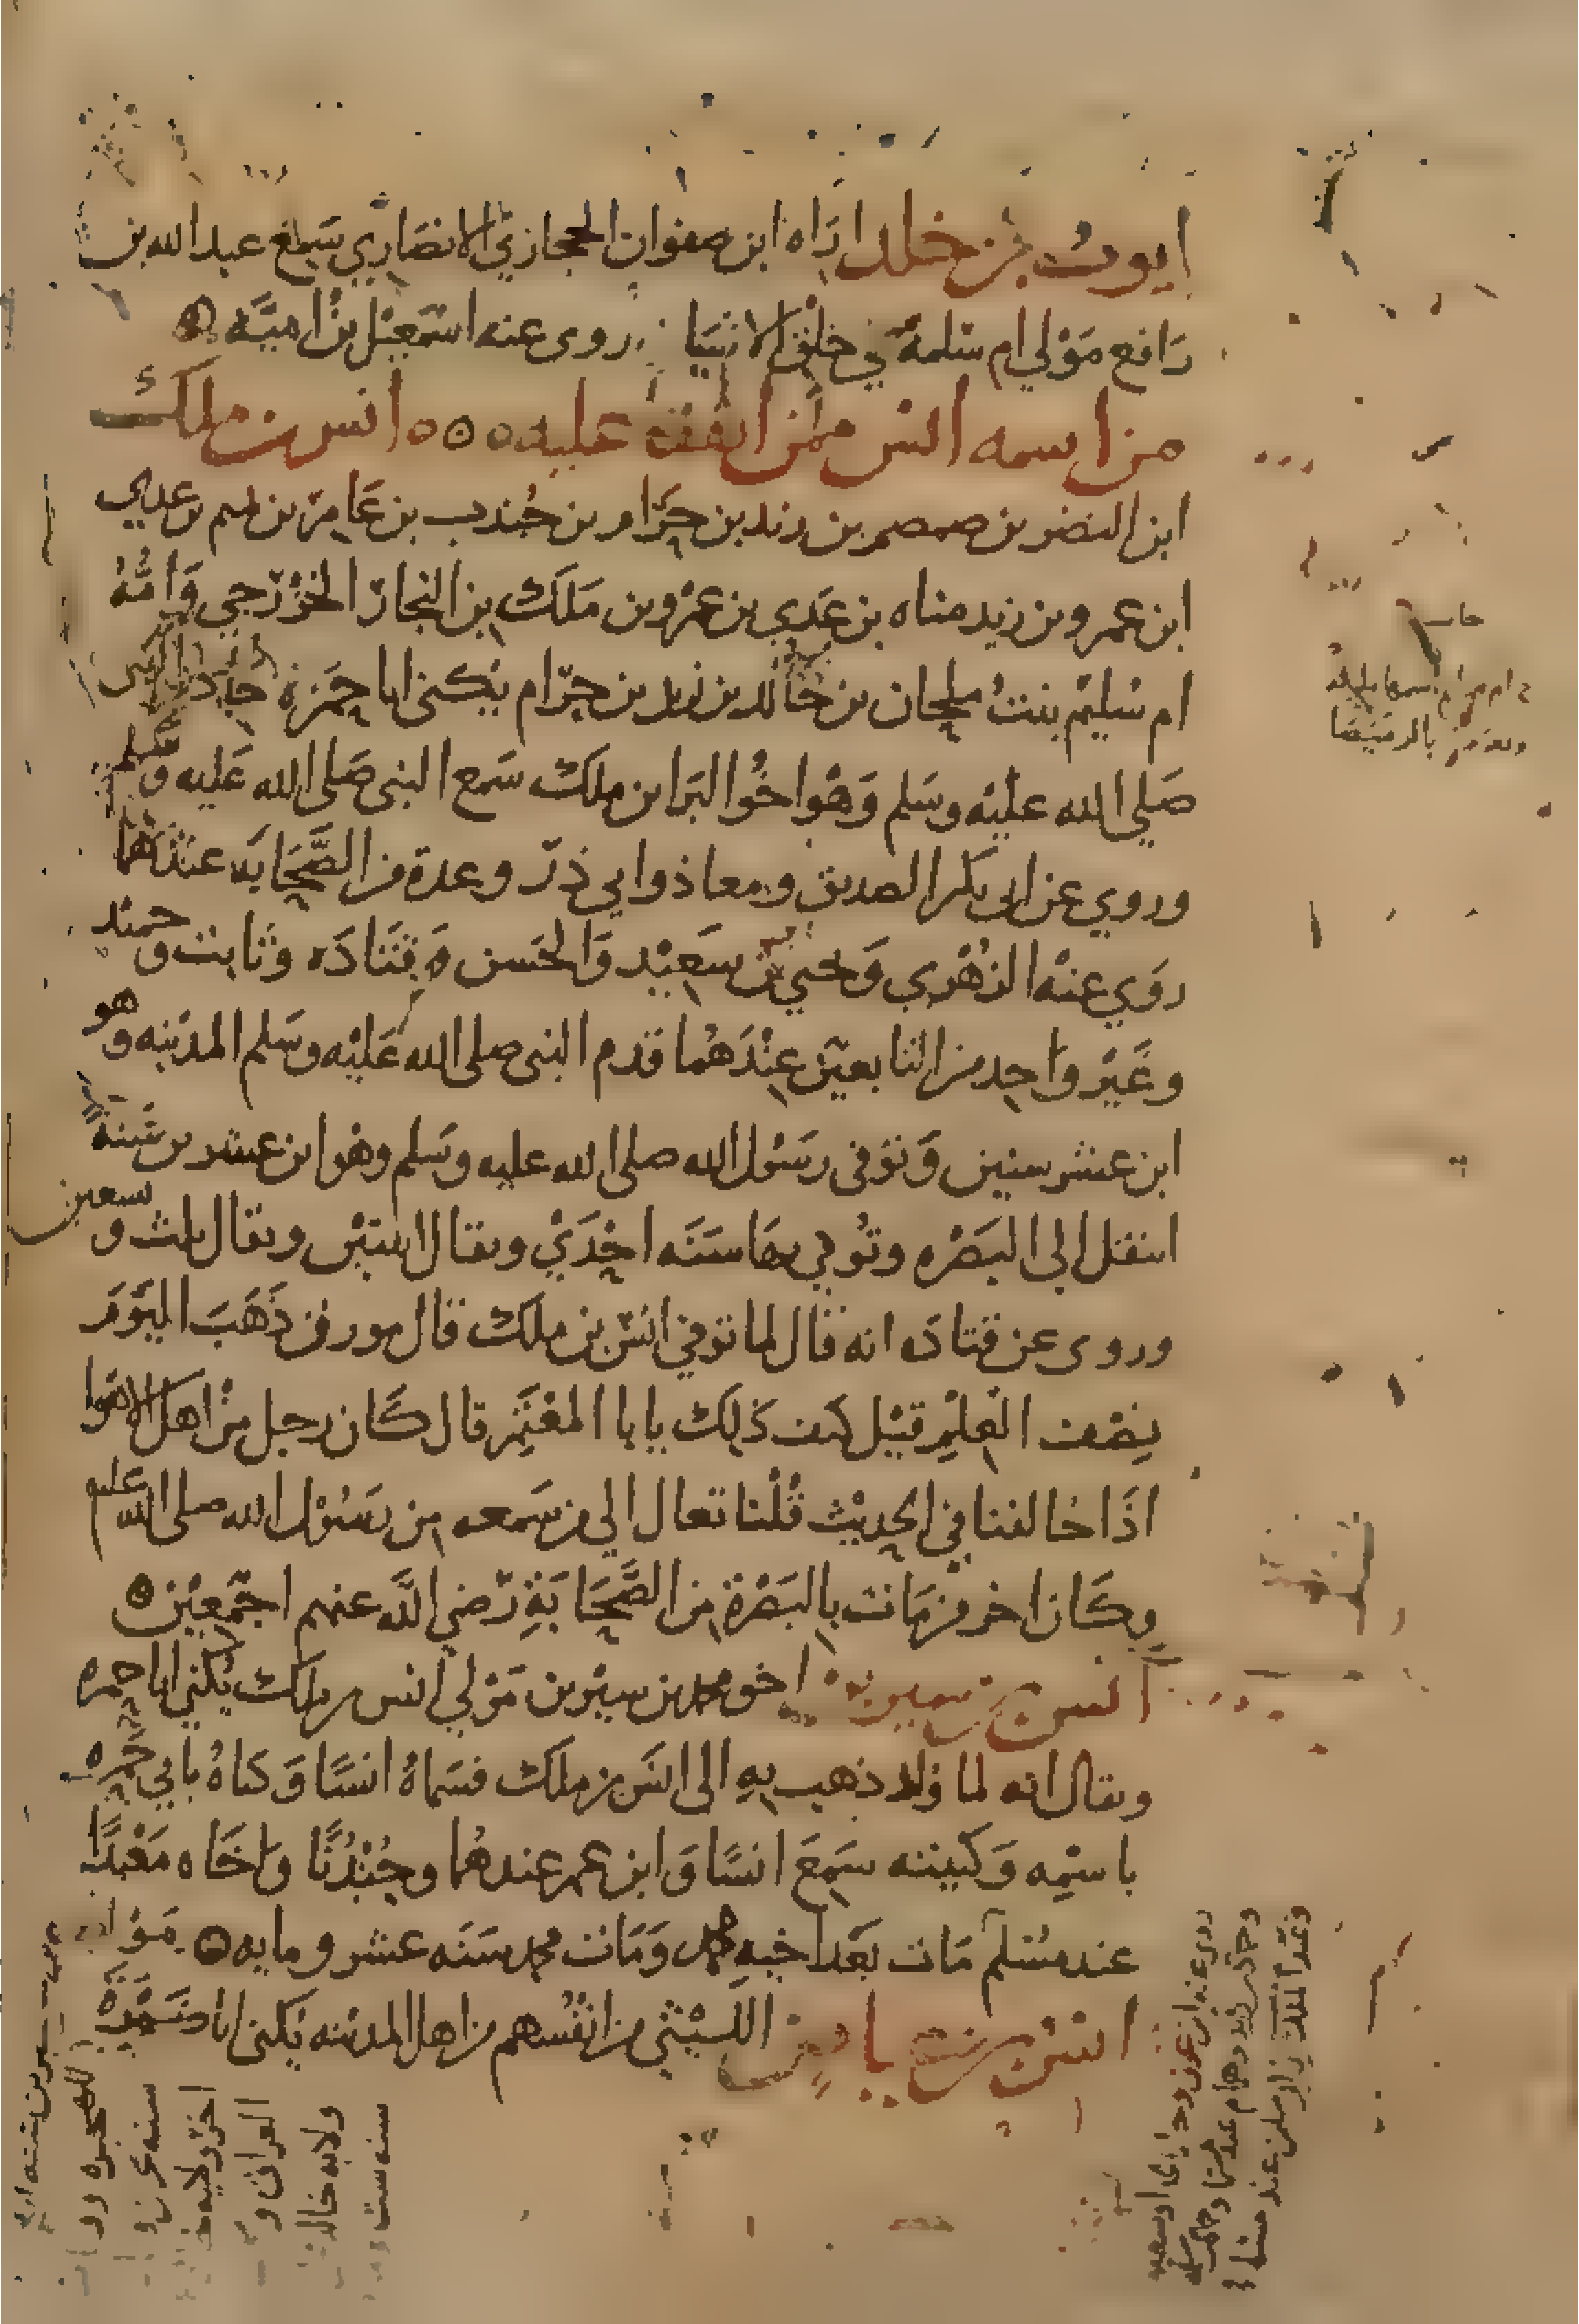 ايوب بن خلد اراه ابن صفوان الحجازي الانصاري سمع عبد الله بن
رافع مولي ام سلمة في خلق الاشيا روى عنه اسمعيل بن امية
من اسمه انس ممن اتفقا عليه انس بن ملك
ابن النضر بن ضمضم بن زيد بن حرام بن جندب بن عامر بن غنم بن عدي
ابن عمرو بن زيد مناه بن عدي بن عمرو بن ملك بن النجار الخزرجي وامه
ام سليم بنت ملحان بن خالد بن زيد بن حرام يكنى ابا حمزة خادم النبي
صلي الله عليه وسلم وهو اخو البرا بن ملك سمع النبي صلى الله عليه وسلم
وروي عن ابي بكر الصديق ومعاذ وابي ذر وعدة من الصحابه عندهما
روي عنه الزهري ويحيي بن سعيد والحسن وقتاده وثابت وحميد
وغير واحد من التابعين عندهما قدم النبي صلى الله عليه وسلم المدينه وهو
ابن عشر سنين وتوفى رسول الله صلى الله عليه وسلم وهو ابن عشرين سنة
انتقل الى البصره وتوفي بها سنه احدي ويقال اثنتين ويقال ثلث وتسعين
وروى عن قتاده انه قال لما توفي انس بن ملك قال مورق ذهب اليوم
نصف العلم قيل كيف ذلك يابا المعتمر قال كان رجل من اهل الاهوا
اذا خالفنا في الحديث قلنا تعال الي من سمعه من رسول الله صلى الله عليه
وكان اخر من مات بالبصرة من الصحابة رضي الله عنهم اجمعين
انس بن سيرين اخو محمد بن سيرين مولي انس بن ملك يكني ابا حمزه
ويقال انه لما ولد ذهب به الى انس بن ملك فسماه انسا وكناه بابي حمزه
باسمه وكنيته سمع انسا وابن عمر عندهما وجندبا واخاه معبدا
عند مسلم مات بعد اخيه محمد ومات محمد سنه عشر ومايه
انس بن عياض الليثي من انفسهم من اهل المدينه يكنى ابا ضمرة
ام حرام اسمها مليكه
بالرميصا
روى عنه ابن عون
وعبد الملك بن ابي سليمن عند مسلم